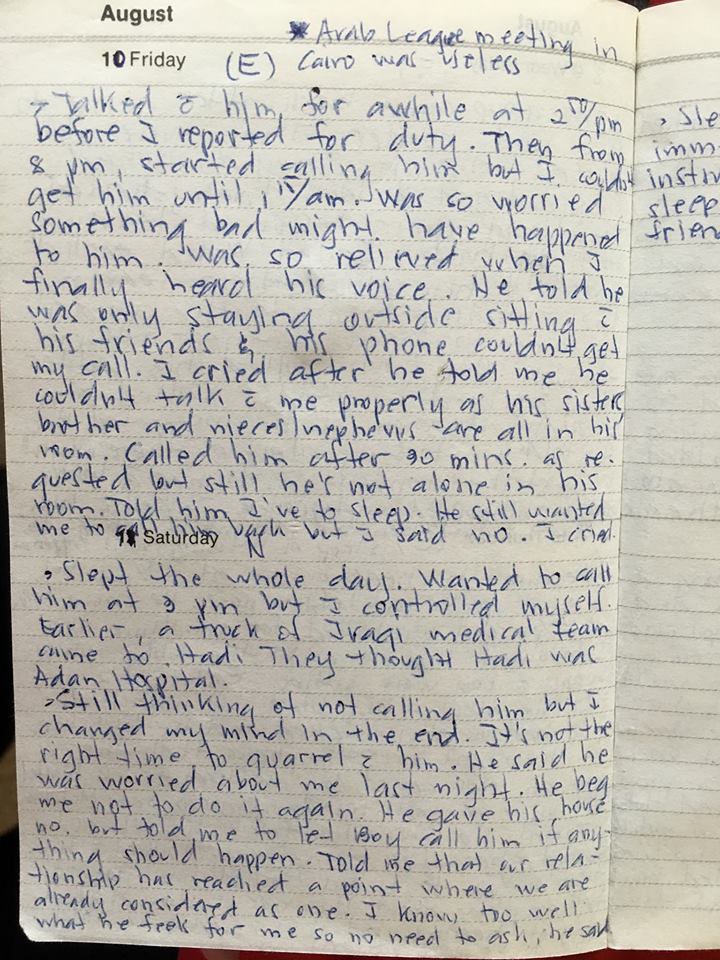 August
* Arab League meeting in
10 Friday (E) Cairo was useless
- Talked c̄ him for awhile at 2⁵⁰/pm
before I reported for duty. Then from
8 pm, started calling him but I couldn't
get him until 1¹⁵/am. Was so worried
something bad might have happened
to him. Was so relieved when I
finally heard his voice. He told he
was only staying outside sitting c̄
his friends & his phone couldn't get
my call. I cried after he told me he
couldn't talk c̄ me properly as his sisters,
brother and nieces/nephews are all in his
room. Called him after 30 mins. as re-
quested but still he's not alone in his
room. Told him I've to sleep. He still wanted
me to call him back but I said no. I cried.
11 Saturday
- Slept the whole day. Wanted to call
him at 3 pm but I controlled myself.
Earlier, a truck of Iraqi medical team
came to Hadi They thought Hadi was
Adan Hospital.
- Still thinking of not calling him but I
changed my mind in the end. It's not the
right time to quarrel c̄ him. He said he
was worried about me last night. He beg
me not to do it again. He gave his house
no. but told me to let Boy call him if any-
thing should happen. Told me that our rela-
tionship has reached a point where we are
already considered as one. I know too well
what he feels for me so no need to ask, he said
- Sle
imm
instr
sleep
frien